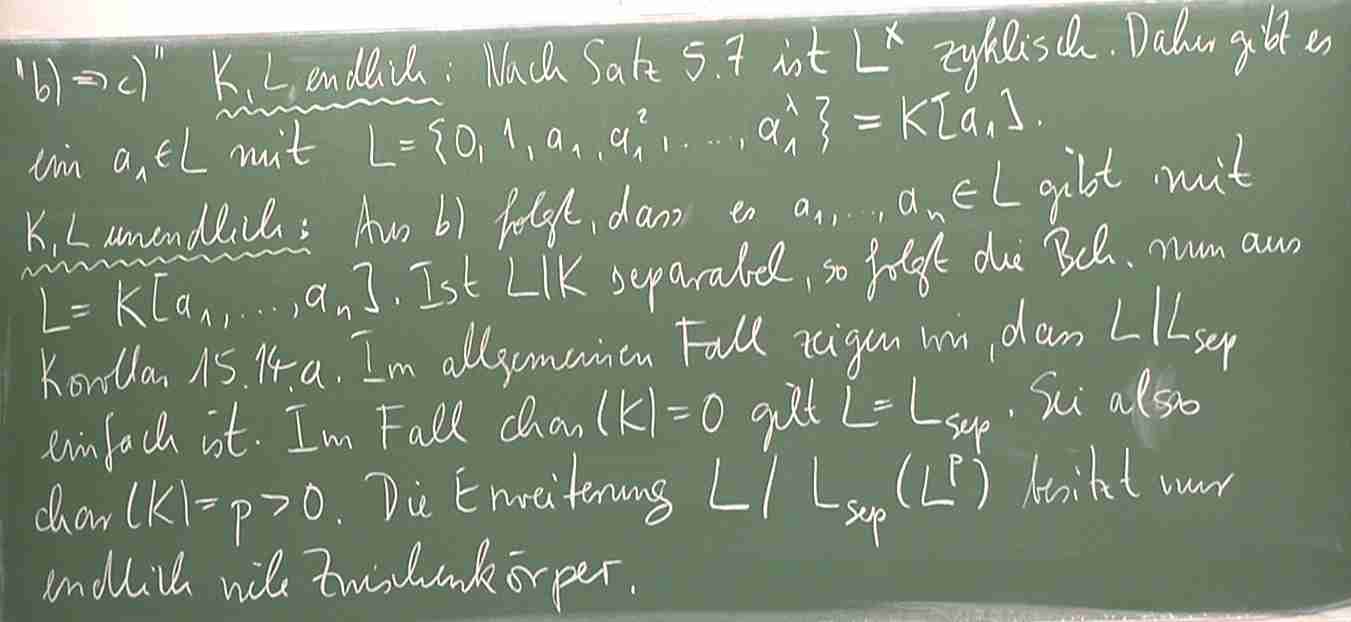 "b) ⇒ c)" K, L endlich: Nach Satz 5.7 ist L^× zyklisch. Daher gibt es
ein a₁ ∈ L mit L = {0, 1, a₁, a₁², ..., a₁^λ} = K[a₁].
K, L unendlich: Aus b) folgt, dass es a₁, ..., aₙ ∈ L gibt mit
L = K[a₁, ..., aₙ]. Ist L|K separabel, so folgt die Beh. nun aus
Korollar 15.14.a. Im allgemeinen Fall zeigen wir, dass L/L_sep
einfach ist. Im Fall char(K) = 0 gilt L = L_sep. Sei also
char(K) = p > 0. Die Erweiterung L/L_sep(L^p) besitzt nur
endlich viele Zwischenkörper.